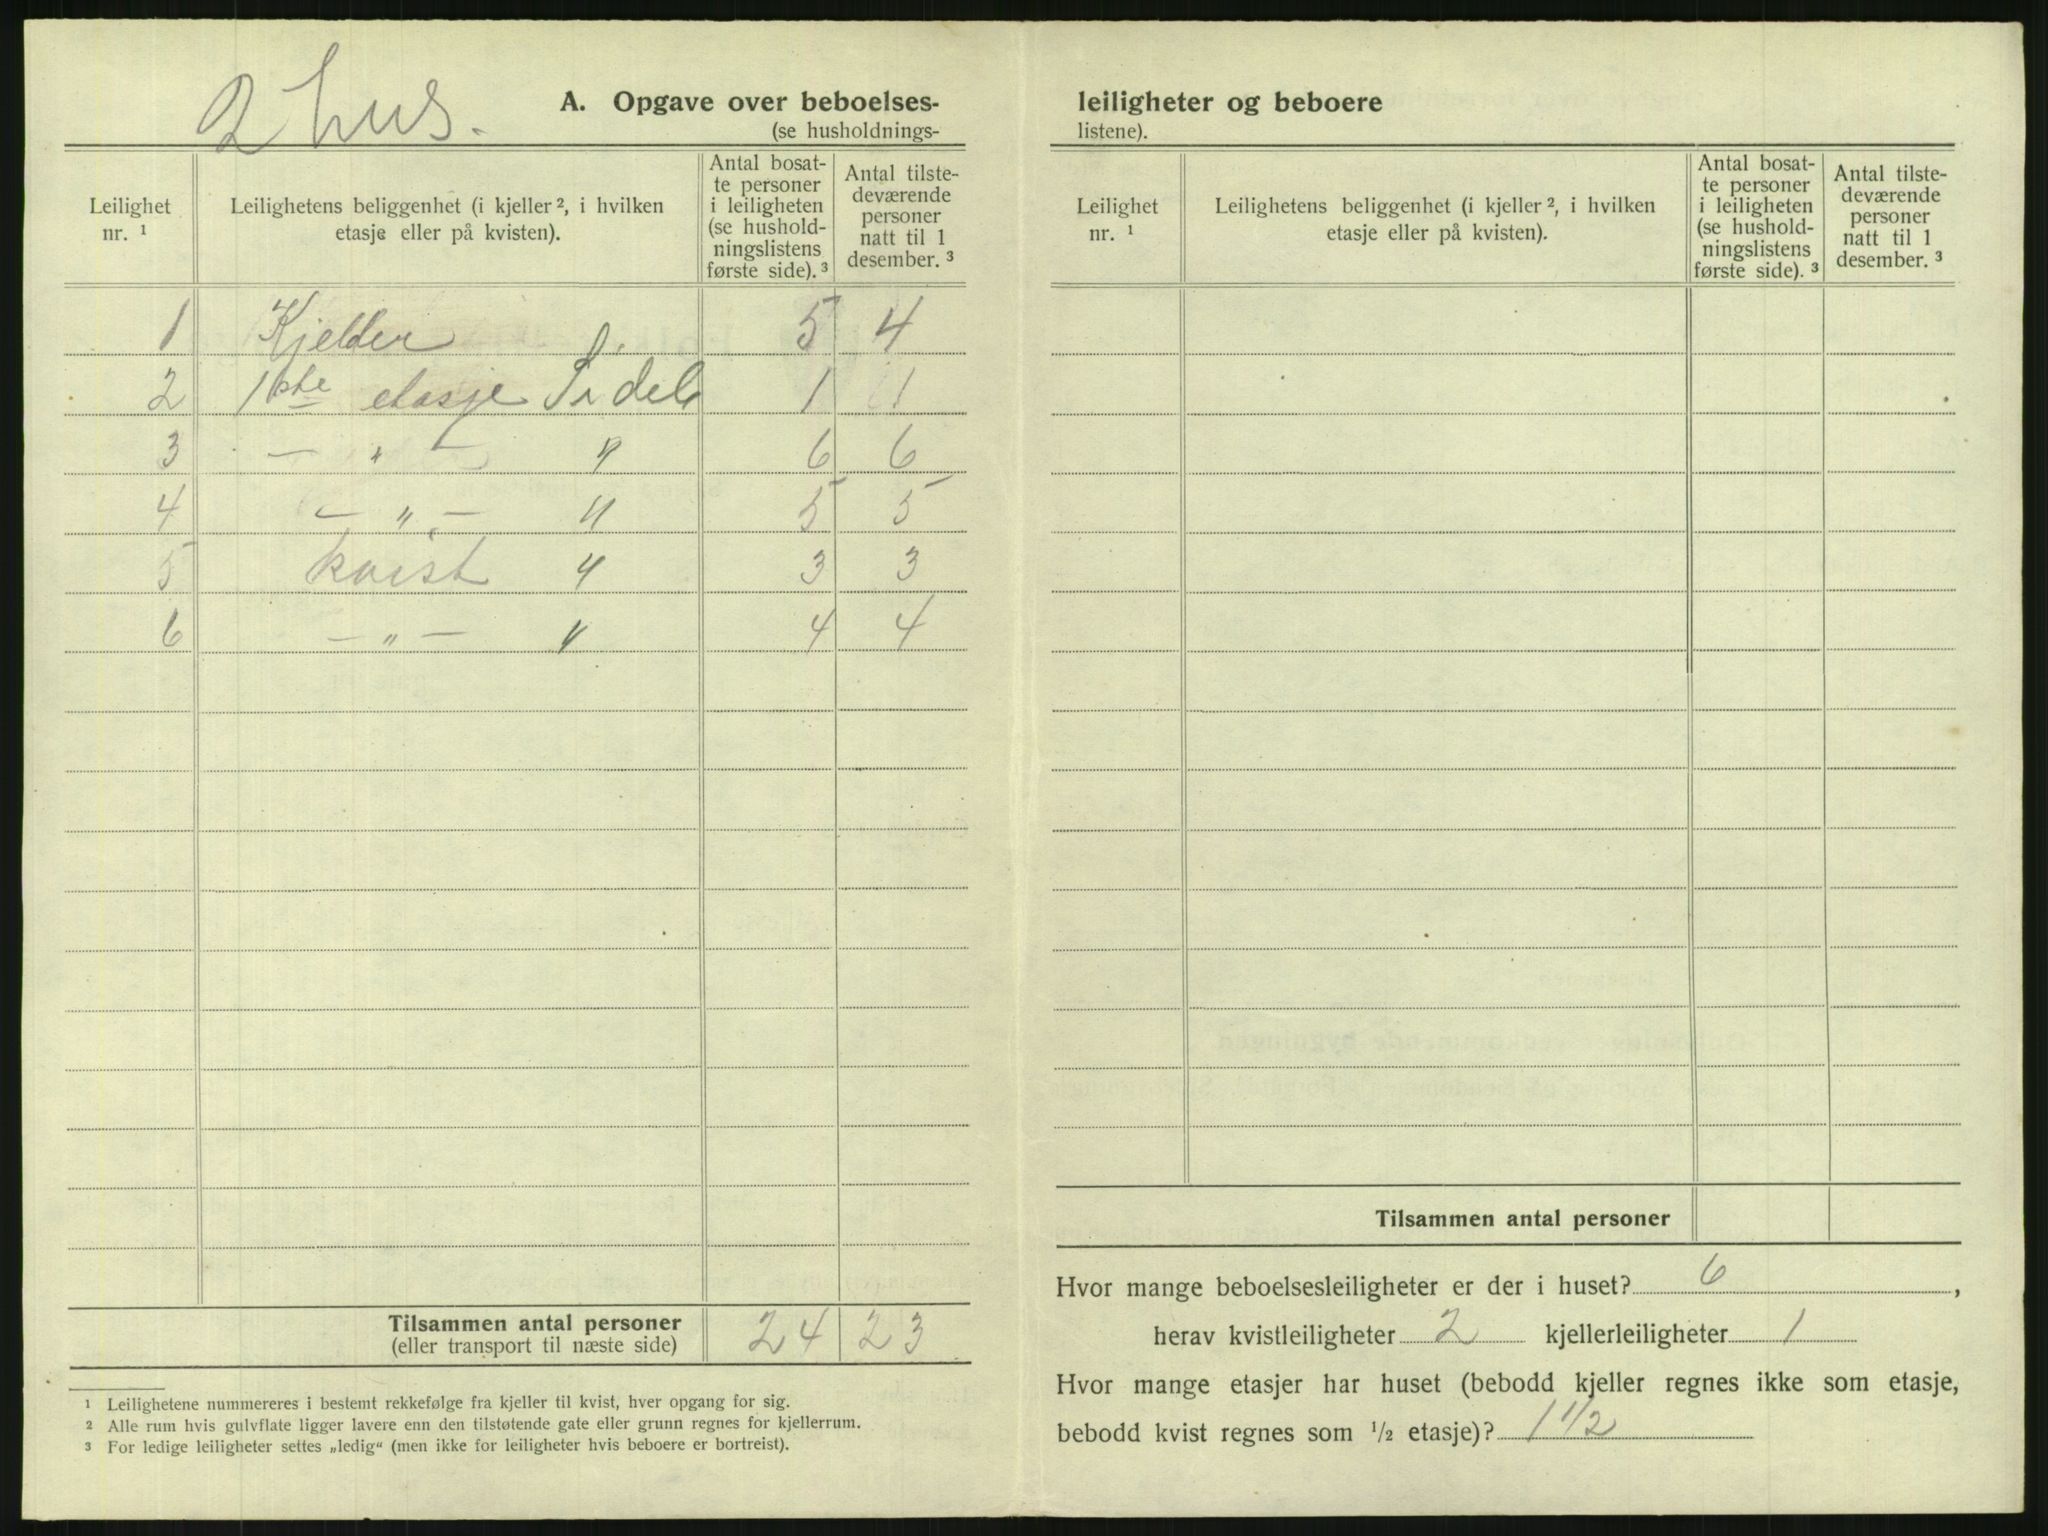 2 hus.
A. Opgave over beboelses-
(se husholdnings-
Leilighet nr. ¹
Leilighetens beliggenhet (i kjeller ², i hvilken etasje eller på kvisten).
Antal bosatte personer i leiligheten (se husholdningslistens første side). ³
Antal tilstedeværende personer natt til 1 desember. ³
1 Kjelder 5 4
2 1ste etasje Sidel 1 1
3 — " — " 6 6
4 — " — " 5 5
5 kvist " 3 3
6 — " — " 4 4
Tilsammen antal personer 24 23
(eller transport til næste side)
¹ Leilighetene nummereres i bestemt rekkefølge fra kjeller til kvist, hver opgang for sig.
² Alle rum hvis gulvflate ligger lavere enn den tilstøtende gate eller grunn regnes for kjellerrum.
³ For ledige leiligheter settes „ledig“ (men ikke for leiligheter hvis beboere er bortreist).
leiligheter og beboere
listene).
Leilighet nr. ¹
Leilighetens beliggenhet (i kjeller ², i hvilken etasje eller på kvisten).
Antal bosatte personer i leiligheten (se husholdningslistens første side). ³
Antal tilstedeværende personer natt til 1 desember. ³
Tilsammen antal personer
Hvor mange beboelsesleiligheter er der i huset? 6 ,
herav kvistleiligheter 2 kjellerleiligheter 1
Hvor mange etasjer har huset (bebodd kjeller regnes ikke som etasje,
bebodd kvist regnes som ½ etasje)? 1 1/2